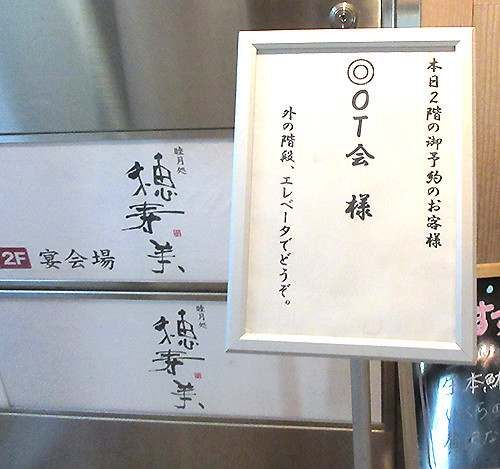 本日2階の御予約のお客様
◎OT会 様
外の階段、エレベータでどうぞ。
睦月処
穂寿美
2F 宴会場
睦月処
穂寿美